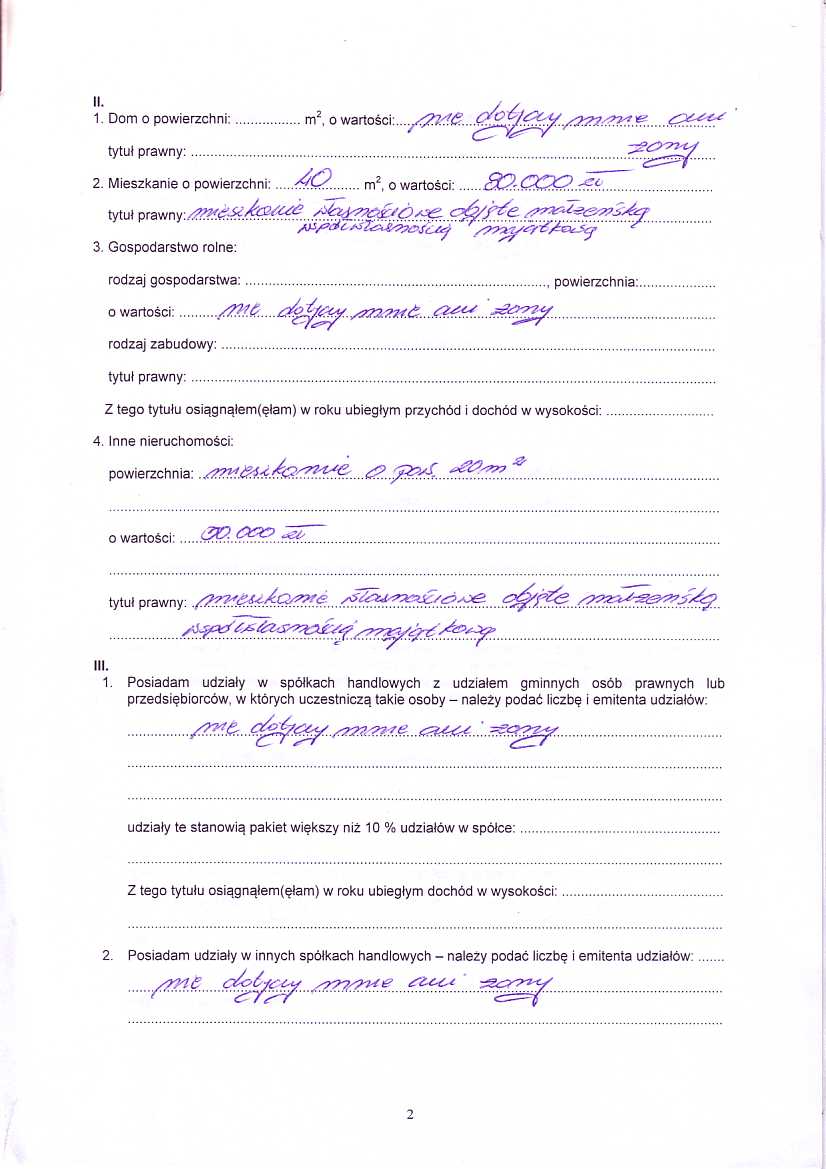 II.
1. Dom o powierzchni: ................. m², o wartości:.....nie dotyczy mnie ani
tytuł prawny: ........................ żony
2. Mieszkanie o powierzchni: .....40........ m², o wartości: ......80.000 zł
tytuł prawny: mieszkanie własnościowe objęte małżeńską
współwłasnością majątkową
3. Gospodarstwo rolne:
rodzaj gospodarstwa: ........................, powierzchnia:....................
o wartości: .......... nie dotyczy mnie ani żony
rodzaj zabudowy: ........................
tytuł prawny: ........................
Z tego tytułu osiągnąłem(ęłam) w roku ubiegłym przychód i dochód w wysokości: ............................
4. Inne nieruchomości:
powierzchnia: ..mieszkanie o pow. 20m²
o wartości: ......000 zł
tytuł prawny: ..mieszkanie własnościowe objęte małżeńską
współwłasnością majątkową
III.
1. Posiadam udziały w spółkach handlowych z udziałem gminnych osób prawnych lub
przedsiębiorców, w których uczestniczą takie osoby – należy podać liczbę i emitenta udziałów:
nie dotyczy mnie ani żony
udziały te stanowią pakiet większy niż 10 % udziałów w spółce: ........................
Z tego tytułu osiągnąłem(ęłam) w roku ubiegłym dochód w wysokości: ........................
2. Posiadam udziały w innych spółkach handlowych – należy podać liczbę i emitenta udziałów: .......
nie dotyczy mnie ani żony
2